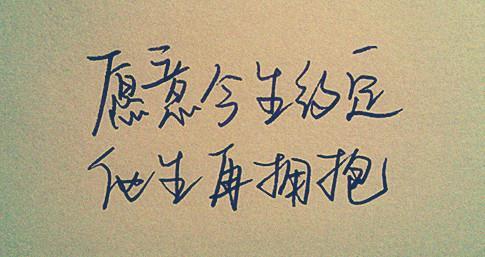 愿意今生约定
他生再拥抱